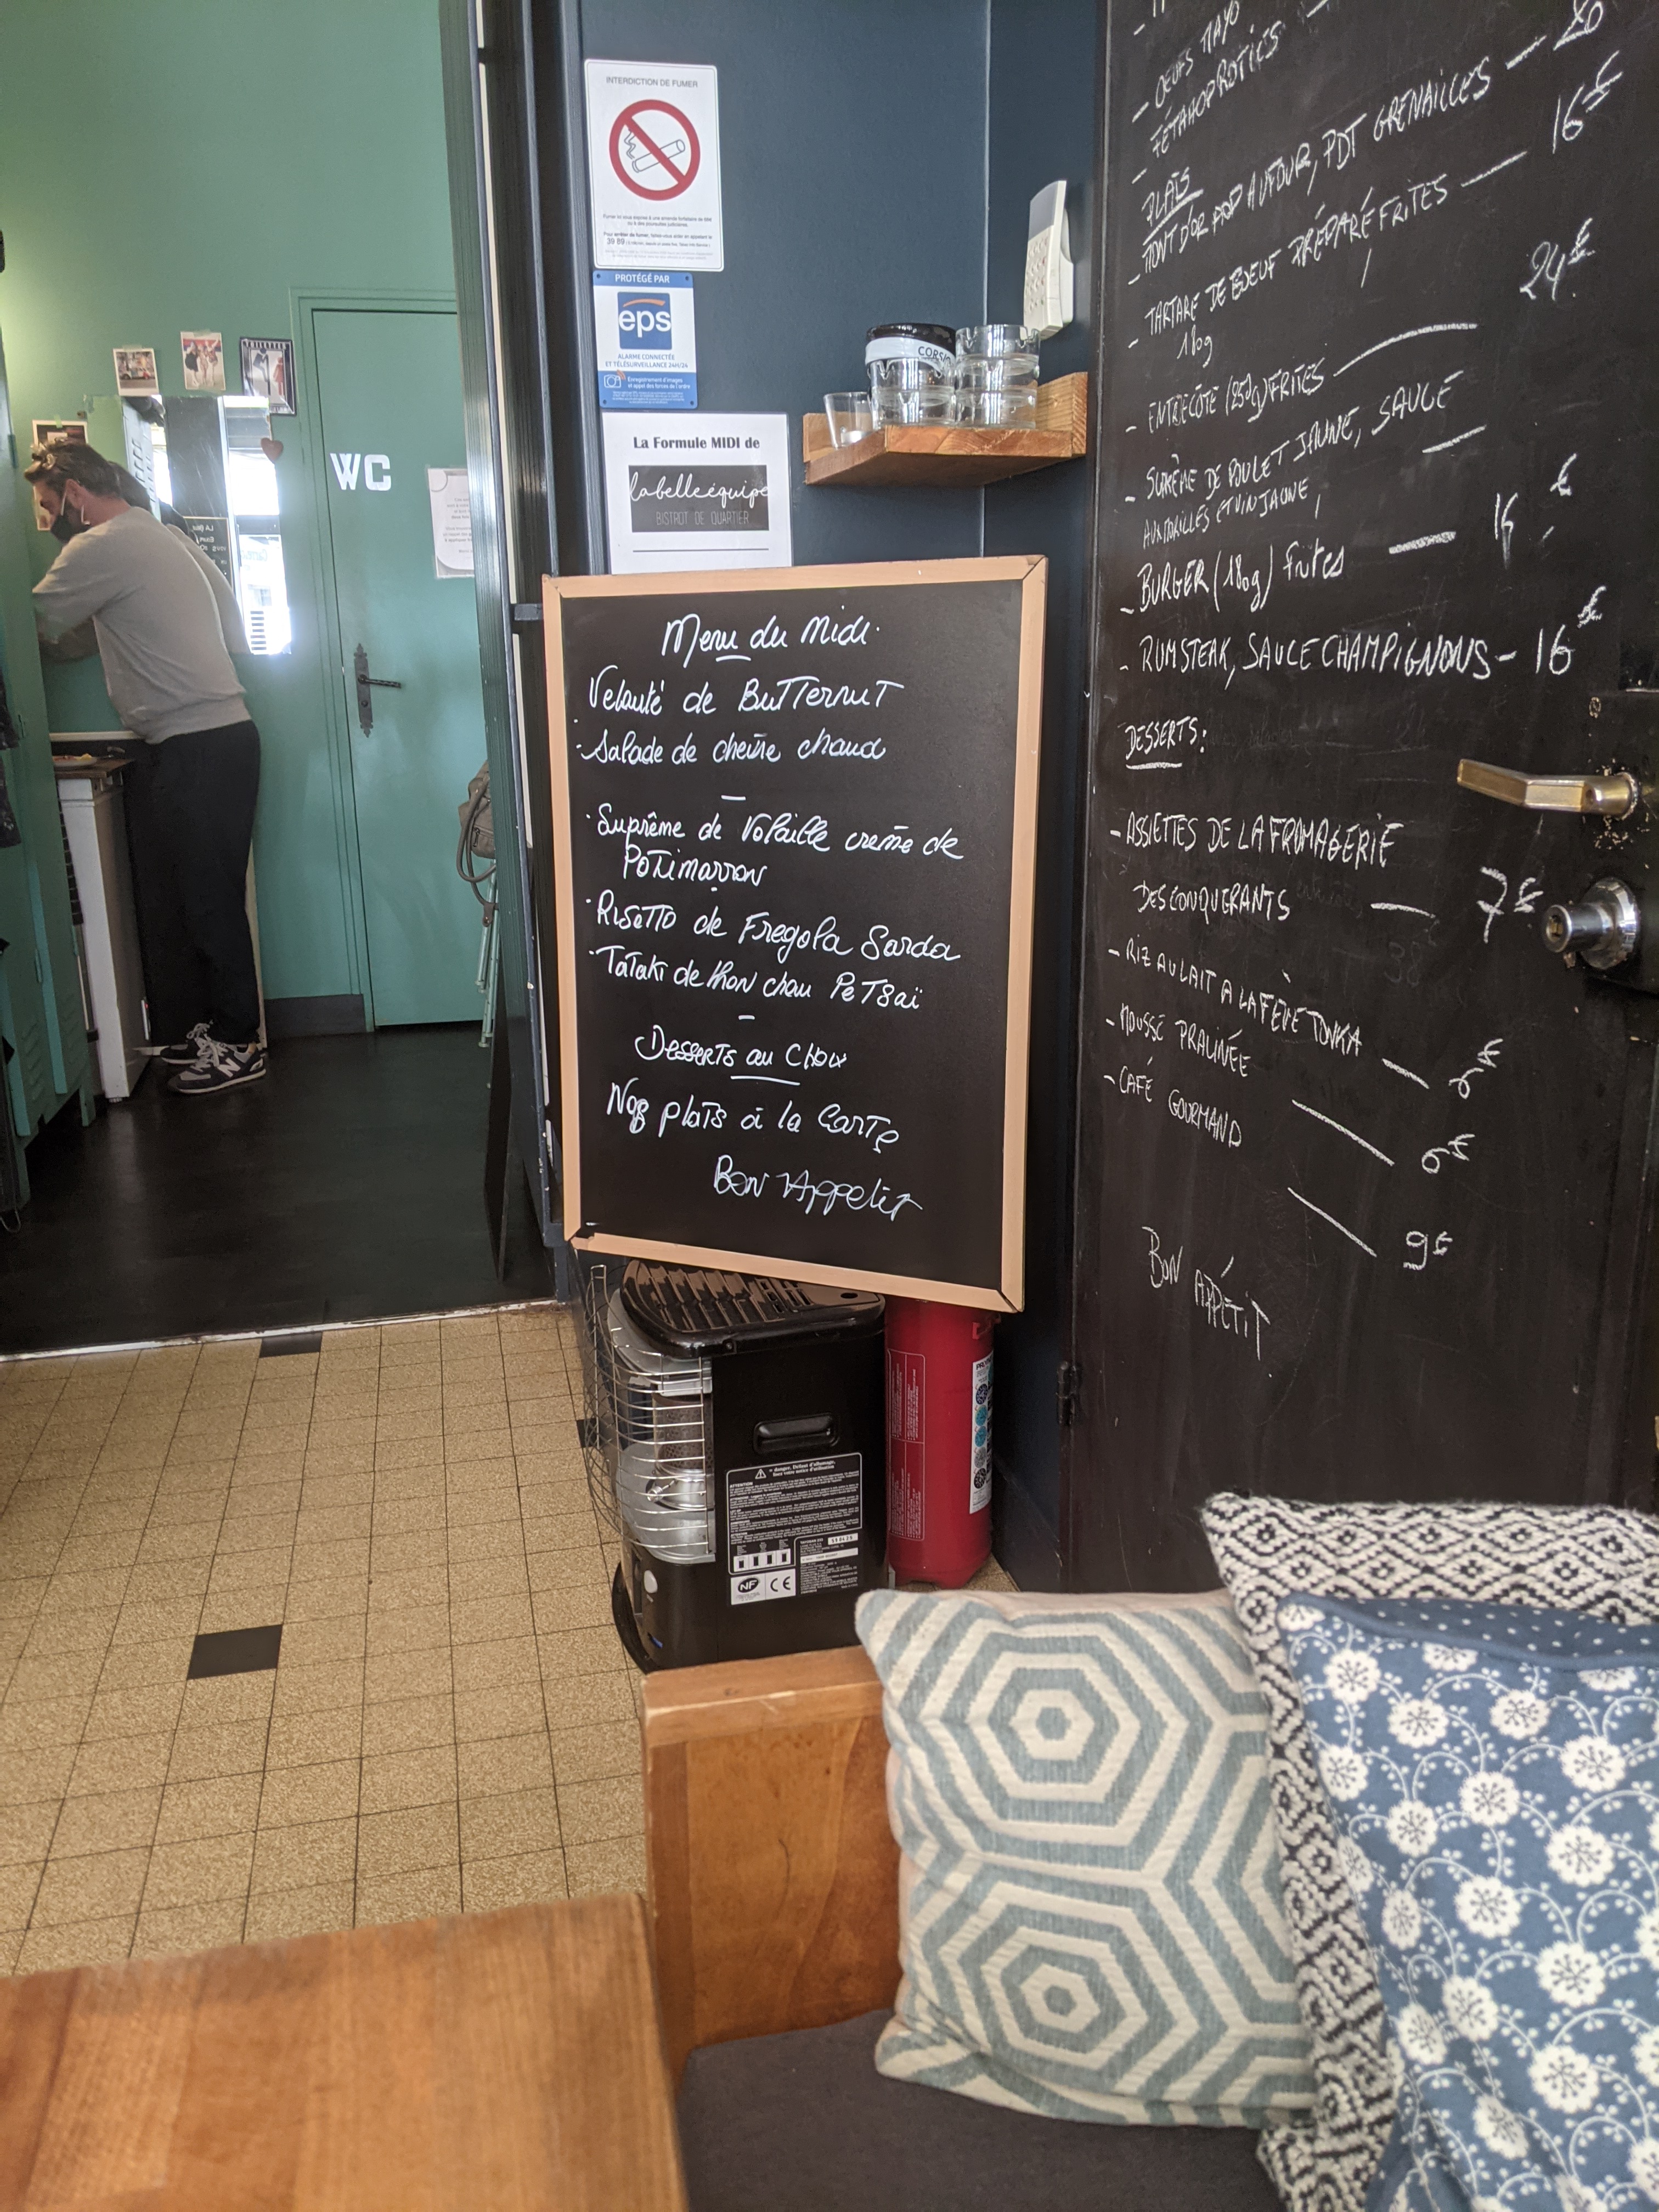 INTERDICTION DE FUMER
39 89
PROTÉGÉ PAR
eps
ALARME CONNECTÉE
ET TÉLÉSURVEILLANCE 24H/24
Enregistrement d'images
et appel des forces de l'ordre
La Formule MIDI de
labelleéquipe
BISTROT DE QUARTIER
WC
CORSIC
Menu du Midi
Velouté de BuTTernuT
· Salade de chèvre chaud
—
· Suprême de Volaille crème de
PoTimarron
· RisoTTo de Fregola Sarda
· TaTaki de thon chou PeTSaï
—
DesserTs au Choix
Nos plaTs à la CarTe
Bon Appetit
- OEUFS MAYO
- FÉTAHOPROTIÈS
PLATS
- MONT D'OR AOP AU FOUR, PDT GRENAILLES — 20
- TARTARE DE BOEUF PRÉPARÉ FRITES — 16€
180g
- ENTRECÔTE (250g) FRITES — 24€
- SUPRÊME DE POULET JAUNE, SAUCE
AUX MORILLES ET VIN JAUNE, —
- BURGER (180g) frites — 16€
- RUMSTEAK, SAUCE CHAMPIGNONS - 16€
DESSERTS:
- ASSIETTES DE LA FROMAGERIE
DES CONQUERANTS — 7€
- RIZ AU LAIT A LA FÈVE TONKA — 6€
- MOUSSE PRALINÉE — 6€
- CAFÉ GOURMAND — 9€
BON APPÉTIT
danger. Défaut d'allumage,
lisez votre notice d'utilisation
ATTENTION
NF
CE
N